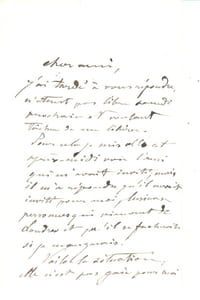 cher ami,
j'ai tardé à vous répondre,
n'étant pas libre samedi
prochain et voulant
tâcher de me libérer.
Pour cela je suis allé cet
après-midi voir l'ami
qui m'avait invité, mais
il m'a répondu qu'il avait
invité pour moi, plusieurs
personnes qui viennent de
Londres et qu'il se fâcherait
si je manquais.
Voilà la situation,
elle n'est pas gaie pour moi